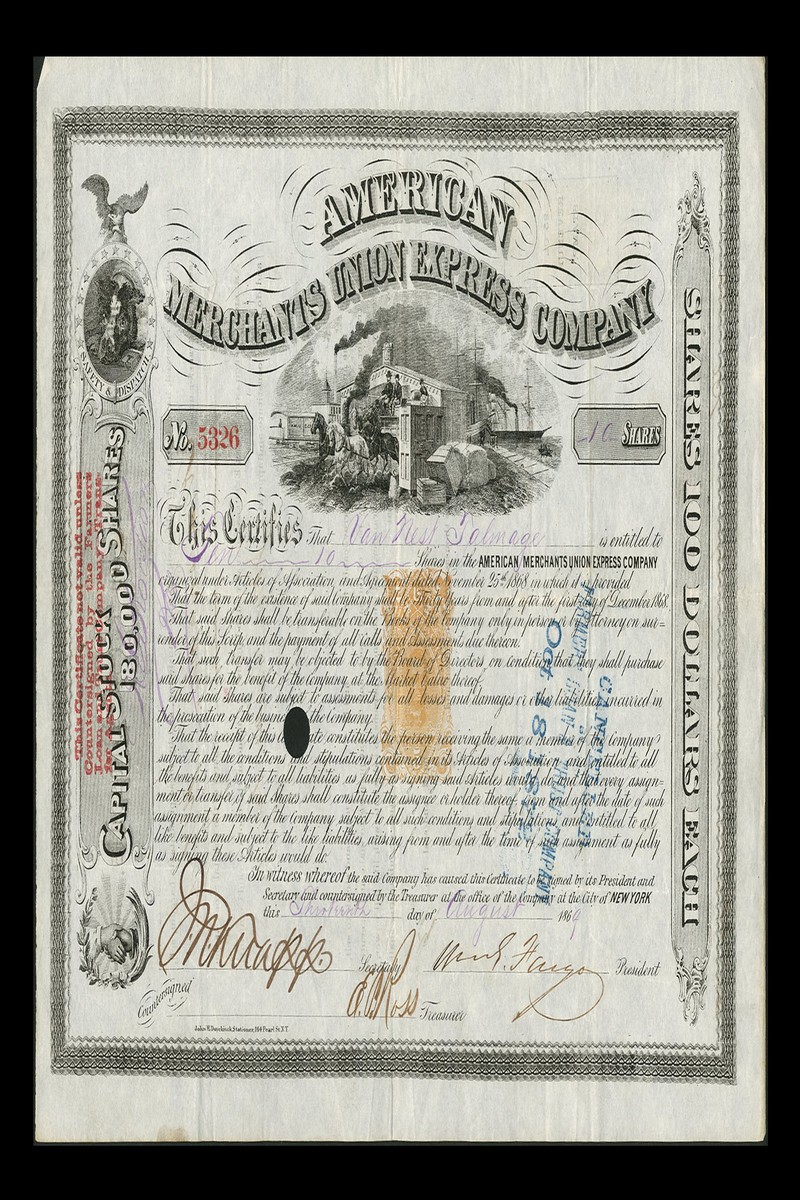 AMERICAN
MERCHANTS UNION EXPRESS COMPANY
SAFETY & DISPATCH
No. 5326
10 SHARES
This Certifies That Van Nest Talmage is entitled to
10 Shares in the AMERICAN MERCHANTS UNION EXPRESS COMPANY
organized under Articles of Association and Agreement dated November 25th 1868 in which it is provided
That the term of the existence of said Company shall be Thirty Years from and after the first day of December 1868.
That said shares shall be transferable on the Books of the Company only in person or by Attorney on sur-
render of this Scrip, and the payment of all calls and assessments due thereon.
That such transfer may be objected to by the Board of Directors on condition that they shall purchase
said shares for the benefit of the Company at the Market Value thereof.
That said shares are subject to assessments for all losses and damages or other liabilities incurred in
the prosecution of the business of the Company.
That the receipt of this constitutes the person receiving the same a member of the Company
subject to all the conditions and stipulations contained in its Articles of Association and entitled to all
the benefits and subject to all liabilities as fully as signing said Articles would do and that every assign-
ment or transfer of said Shares shall constitute the assignee or holder thereof from and after the date of such
assignment a member of the Company subject to all such conditions and stipulations and entitled to all
like benefits and subject to the like liabilities, arising from and after the time of such assignment as fully
as signing these Articles would do.
In witness whereof the said Company has caused this Certificate to be signed by its President and
Secretary and countersigned by the Treasurer at the office of the Company at the City of NEW YORK
this Thirteenth day of August 1869
J N Knapp Secretary Wm G. Fargo President
Countersigned
E. P. Ross Treasurer
John H. Duyckinck, Stationer, 164 Pearl St. N.Y.
CAPITAL STOCK 180,000 SHARES
This Certificate not valid unless
Countersigned by the Farmers
Loan and Trust Company, Trans-
SHARES 100 DOLLARS EACH
CANCELLED
FARMERS LOAN & TRUST COMPANY
Oct 18